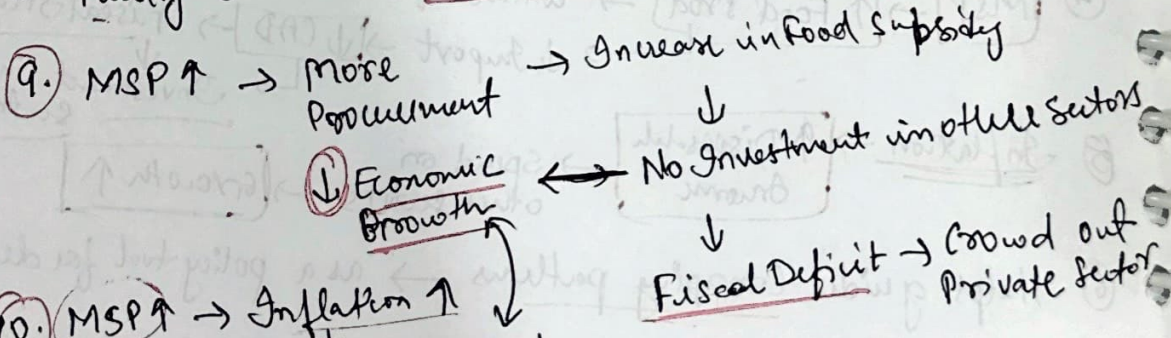 9. MSP ↑ → More Procurement → Increase in Food Subsidy
↓
↓ Economic Growth ↔ No Investment in other Sectors
↓
Fiscal Deficit → Crowd out Private Sector
MSP ↑ → Inflation ↑